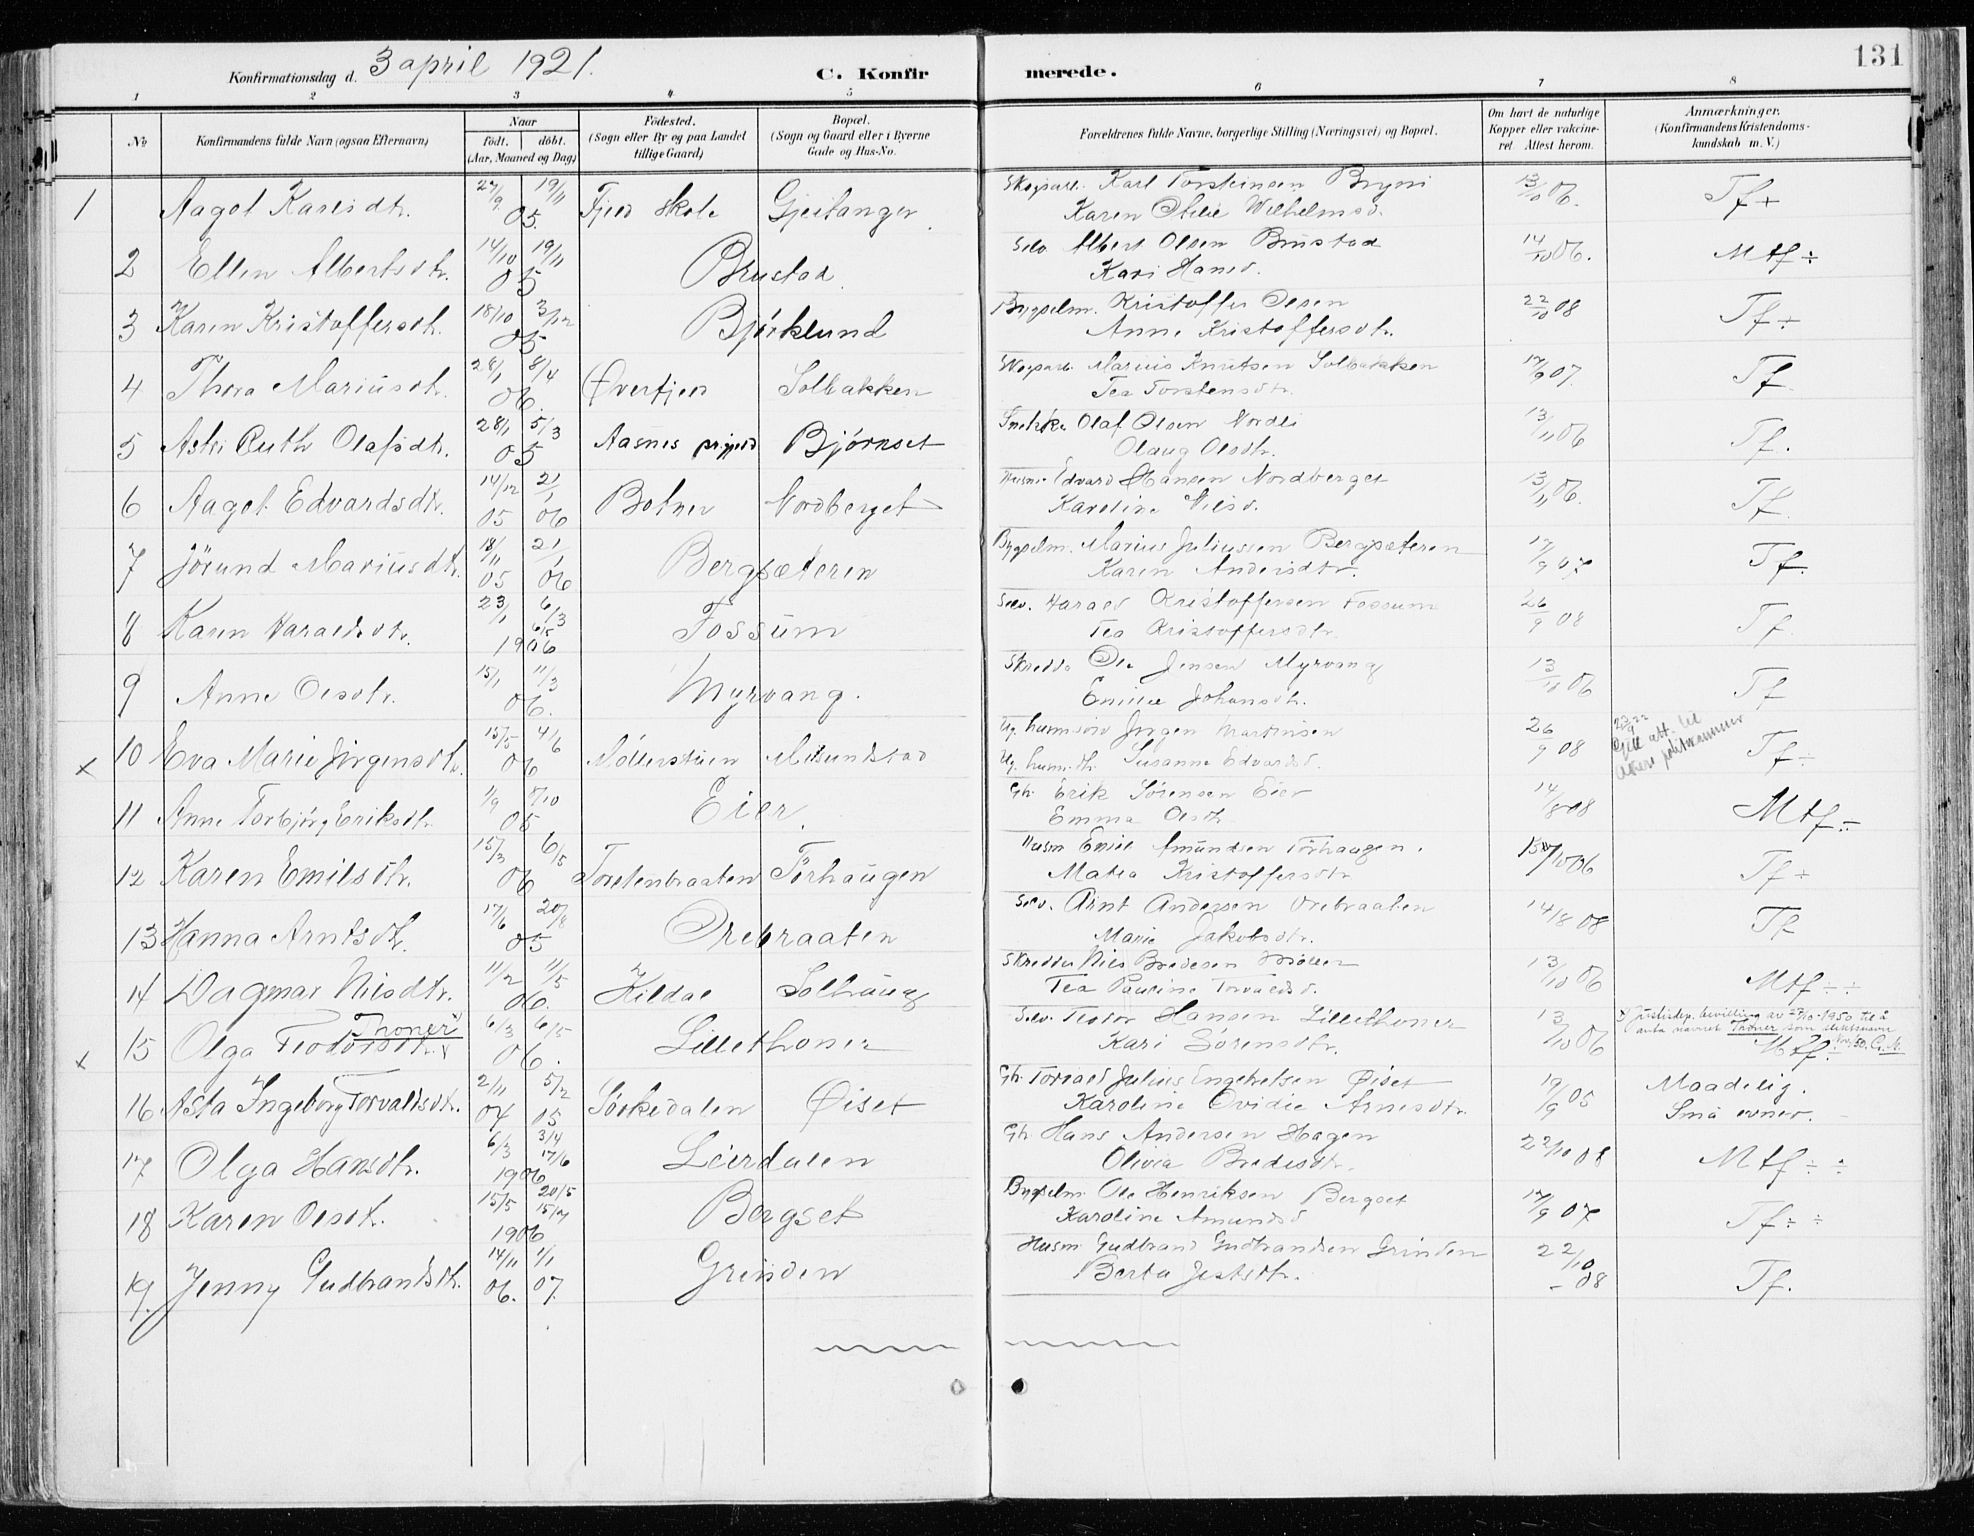 131
Konfirmationsdag d. 3 april 1921. C. Konfirmerede.
1 2 3 4 5 6 7 8
No Konfirmandens fulde Navn (ogsaa Efternavn) Naar födt. döbt. (Aar, Maaned og Dag) Födested. (Sogn eller By og paa Landet tillige Gaard) Bopæl. (Sogn og Gaard eller i Byerne Gade og Hus-No. Forældrenes fulde Navne, borgerlige Stilling (Næringsvei) og Bopæl. Om havt de naturlige Kopper eller vakcineret Attest herom. Anmærkninger. (Konfirmandens Kristendomskundskab m. V.)
1 Aagot Karlsdtr. 27/9 19/11 05. Fjeld skole Gjeitanger Skogsarb. Karl Torsteinsen Bryni 13/10 06. Tf +
Karen Otilie Wilhelmsd.
2 Ellen Albertsdtr. 14/10 19/11 05 Brustad Selv Albert Olsen Brustad 14/10 06. Mtf ÷
Kari Hansd.
3 Karen Kristoffersdtr. 18/10 3/12 05 Björklund Bygselm. Kristoffer Olsen 22/10 08 Tf ÷
Anne Kristoffersdtr.
4 Thora Mariusdtr. 28/1 8/4 06. Øverfjeld Solbakken Skogsarb. Marius Knutsen Solbakken 17/9 07. Tf.
Tea Torstensdtr.
5 Astri Ruth Olafsdtr. 28/1 5/3 05 Aasnes prgjeld Bjørnset Snekke Olaf Olsen Nordli 13/11 06 Tf.
Olaug Olsdtr.
6 Aagot Edvardsdtr. 14/12 05 21/1 06 Botner Nordberget Husm. Edvard Hansen Nordberget 13/11 06. Tf.
Karoline Nilsd.
7 Jörund Mariusdtr. 18/11 05 21/1 06 Bergsæteren Bygselm. Marius Juliussen Bergsæteren 17/9 07 Tf.
Karen Andersdtr.
8 Karen Haraldsdtr. 23/1 6/3 6/5 1906 Fossum Selv. Harald Kristoffersen Fossum 26/9 08 Tf.
Tea Kristoffersdtr.
9 Anne Olsdtr. 15/1 11/3 06. Myrvang. Skredd. Ole Jensen Myrvang 13/10 06 Tf
Emilie Johansdtr.
x 10 Eva Marie Jörgensdtr. 15/5 4/6 06 Möllerstuen Misundstad Ug. husmsön Jörgen Martinsen 26/9 08 Tf ÷
Ug. husm.dt. Susanne Edvardsd.
11 Anne Torbjörg Eriksdtr. 1/9 8/10 05 Eier. Gbr. Erik Sörensen Eier 14/8 08 Mtf ÷
Emma Olsdtr.
12 Karen Emilsdtr. 15/3 6/5 06 Torstenbraaten Törhaugen Husm Emil Amundsen Törhaugen. 15/10 06 Tf ÷
Matea Kristoffersdtr
13 Hanna Arntsdtr. 17/6 20/8 05 Orebraaten Selv. Arnt Andersen Orebraaten 14/8 08 Tf
Marie Jakobsdtr.
14 Dagmar Nilsdtr. 11/2 11/5 06. Kildal Solhaug Skredder Nils Bredesen Möller 13/10 06 Mtf ÷ ÷
Tea Pauline Torvaldsd.
Thoner
x 15 Olga Teodorsdtr. x 6/3 6/5 06. Lillethoner Selv. Teodor Hansen Lillethoner 13/10 06 x Justisdep. bevilling av 27/10-1950 til å
Kari Sörensdtr. anta navnet Thoner som slektsnavn
Mtf ÷
16 Asta Ingeborg Torvaldsdtr. 2/11 04 5/2 05 Sörkedalen Øiset Gbr. Torvald Julius Engebretsen Øiset 19/9 05 Maadelig.
Karoline Ovidie Arnesdtr. Små evner.
17 Olga Hansdtr. 6/3 3/4 17/6 1906 Leirdalen Gbr. Hans Andersen Hagen 22/10 08 Mtf ÷ ÷
Olivia Bredesdtr.
18 Karen Olsdt. 15/5 20/5 15/7 1906 Bergset Bygselm Ole Henriksen Bergset 17/9 07 Tf ÷ ÷
Karoline Amundsd
19. Jenny Gudbrandsdtr. 14/11 06. 1/1 07. Grinden Husm Gudbrand Gudbrandsen Grinden 22/10 - 08 Tf.
Berta